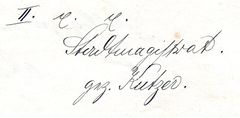 II. r. r.
Stadtmagistrat.
gez. Kutzer.